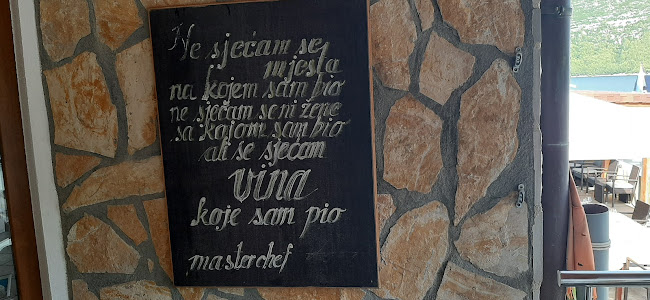 Ne sjećam se
mjesta
na kojem sam bio
ne sjećam se ni žene
sa kojom sam bio
ali se sjećam
vina
koje sam pio
masterchef